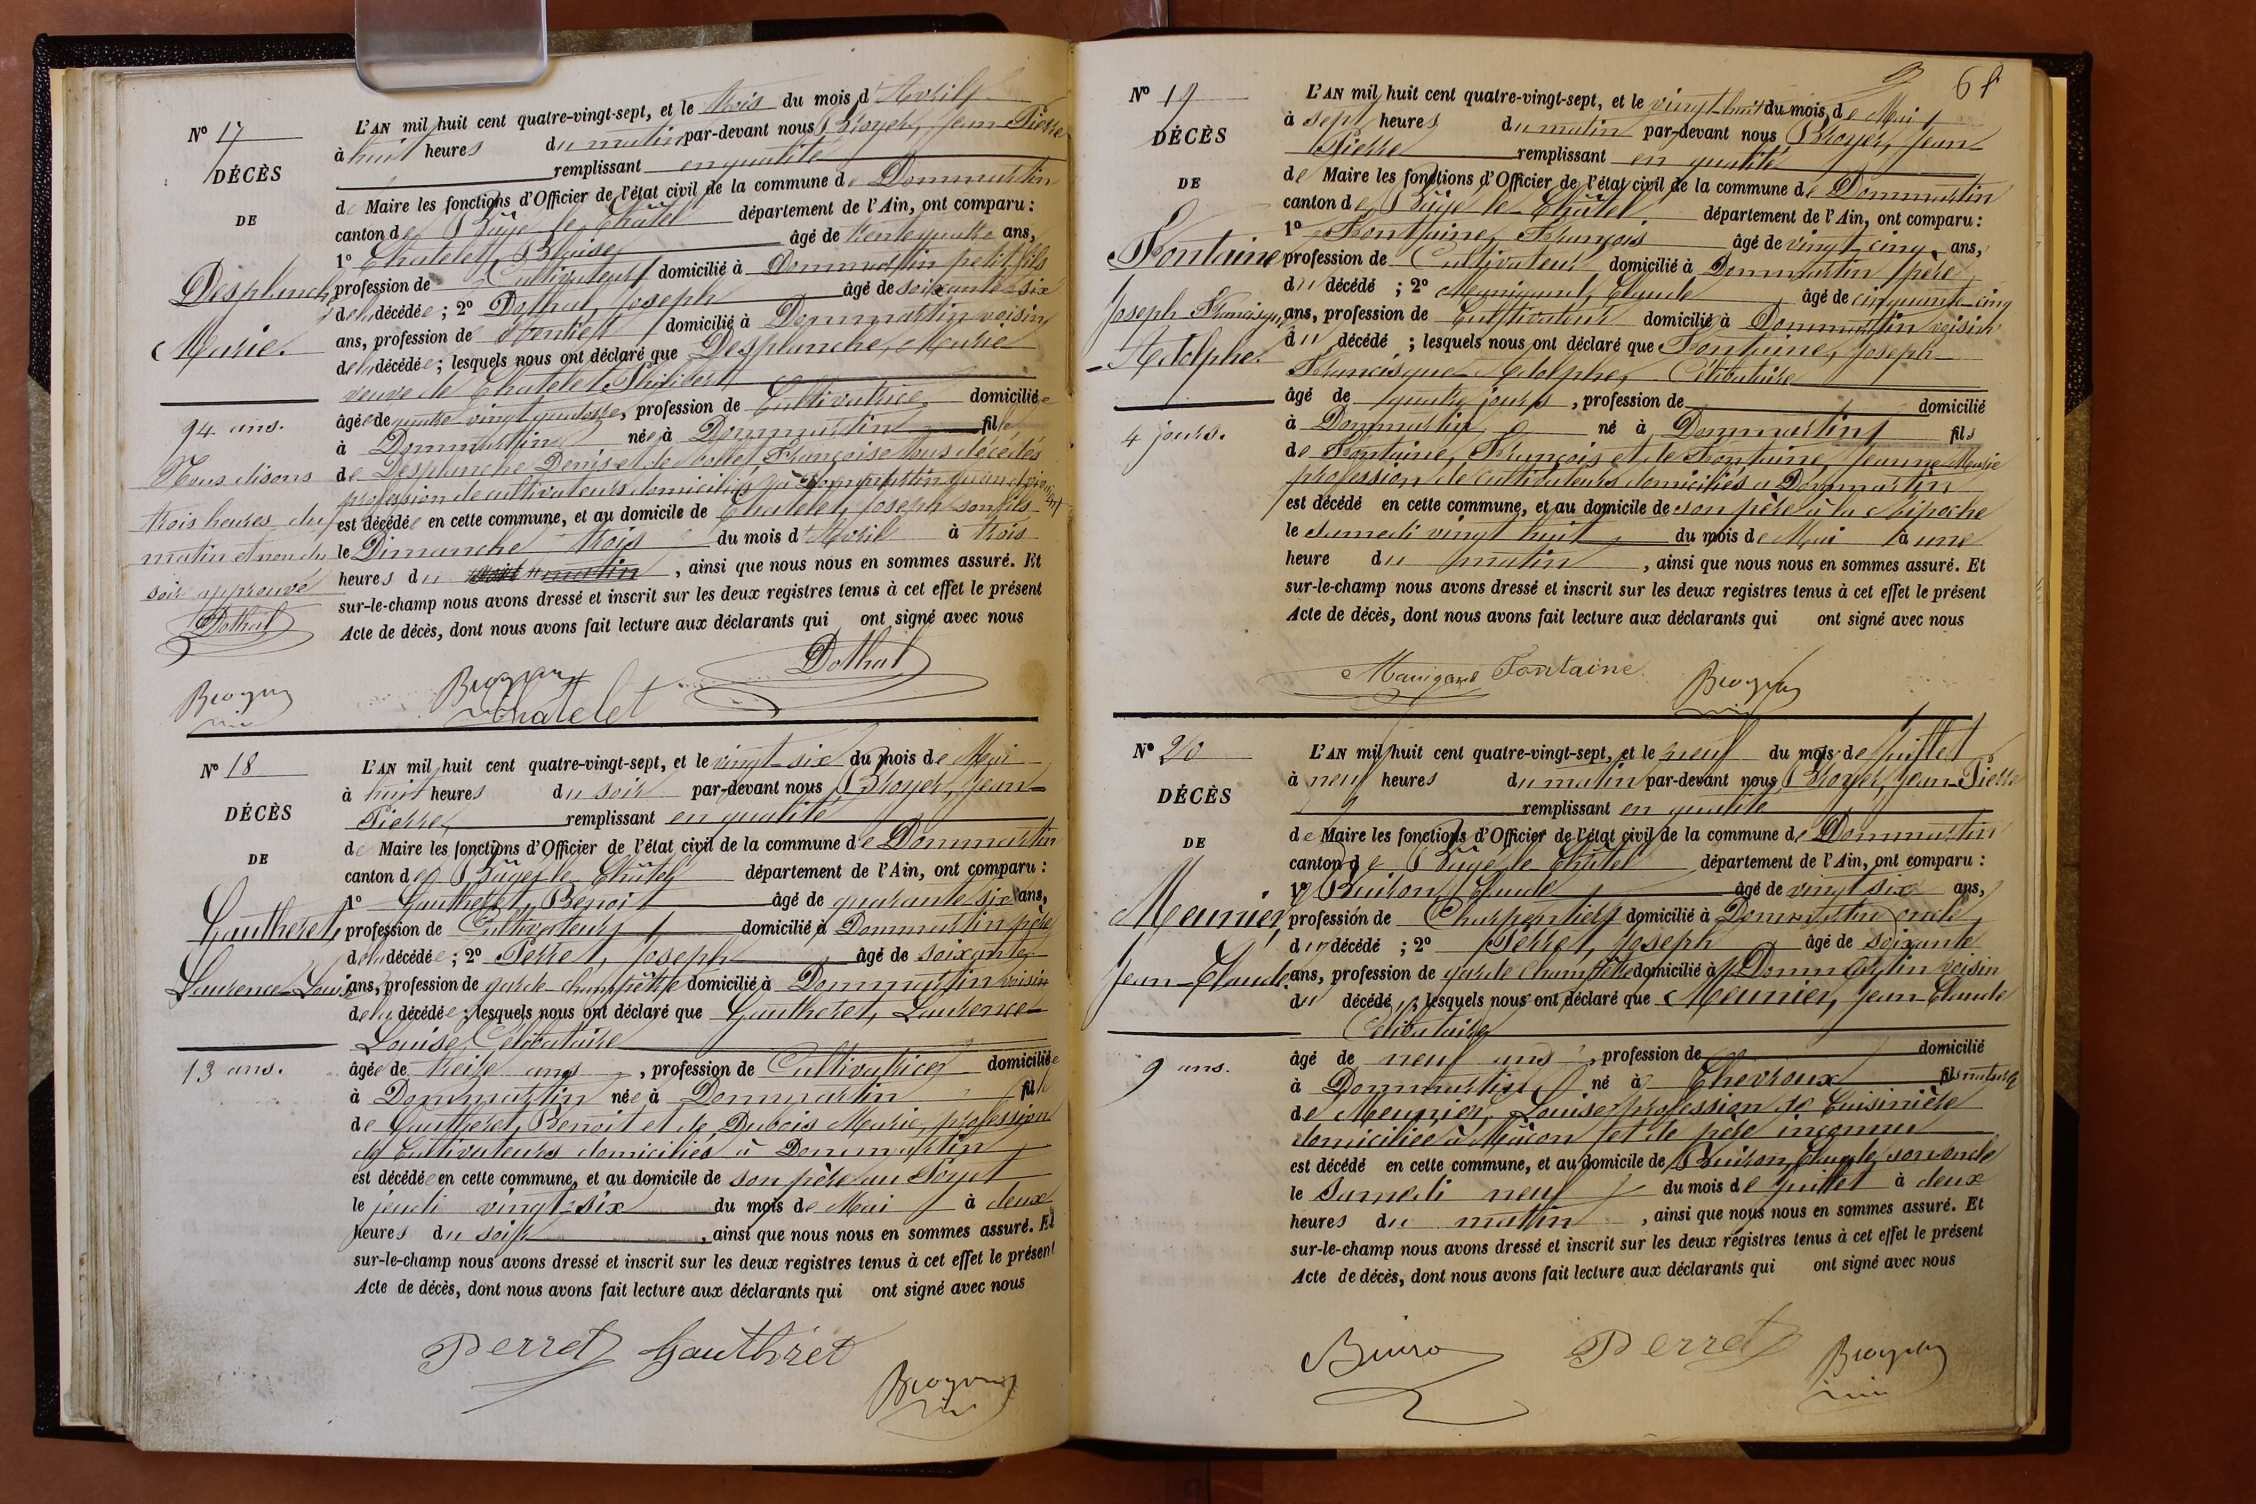 Nº 17
DÉCÈS
DE
Desplanche
Marie.
94 ans.
Nous disons
trois heures du
matin et non du
soir approuvé
Dothal
Broyer
L'AN mil huit cent quatre-vingt-sept, et le trois du mois d'Avril
à huit heures du matin par-devant nous Broyer, Jean-Pierre
remplissant en qualité
de Maire les fonctions d'Officier de l'état civil de la commune de Dommartin
canton de Bâgé-le-Châtel département de l'Ain, ont comparu :
1º Chatelet, Blaise âgé de trente quatre ans,
profession de Cultivateur domicilié à Dommartin petit fils
de la décédée ; 2º Dothal, Joseph âgé de soixante-six
ans, profession de rentier domicilié à Dommartin voisin
de la décédée ; lesquels nous ont déclaré que Desplanche, Marie
veuve de Chatelet Philibert
âgée de quatre-vingt quatorze, profession de Cultivatrice domiciliée
à Dommartin née à Dommartin fille
de Desplanche Denis et de Françoise tous décédés
profession de cultivateurs domiciliés à Dommartin quand vivaient
est décédée en cette commune, et au domicile de Chatelet, Joseph son fils
le Dimanche trois du mois d'Avril à trois
heures du soir matin, ainsi que nous nous en sommes assuré. Et
sur-le-champ nous avons dressé et inscrit sur les deux registres tenus à cet effet le présent
Acte de décès, dont nous avons fait lecture aux déclarants qui ont signé avec nous
Dothal
Broyer
Chatelet
Nº 18
DÉCÈS
DE
Gautheret,
Laurence-Louise
13 ans.
L'AN mil huit cent quatre-vingt-sept, et le vingt-six du mois de Mai
à huit heures du soir par-devant nous Broyer, Jean-
Pierre, remplissant en qualité
de Maire les fonctions d'Officier de l'état civil de la commune de Dommartin
canton de Bâgé-le-Châtel département de l'Ain, ont comparu :
1º Gautheret, Benoit âgé de quarante six ans,
profession de Cultivateur domicilié à Dommartin père
de la décédée ; 2º Perret, Joseph âgé de soixante
ans, profession de garde-champêtre domicilié à Dommartin voisin
de la décédée ; lesquels nous ont déclaré que Gautheret, Laurence-
Louise, Célibataire
âgée de treize ans, profession de Cultivatrice domiciliée
à Dommartin née à Dommartin fille
de Gautheret, Benoit et de Dubois Marie, profession
de Cultivateurs domiciliés à Dommartin
est décédée en cette commune, et au domicile de son père au
le jeudi vingt-six du mois de Mai à deux
heures du soir, ainsi que nous nous en sommes assuré. Et
sur-le-champ nous avons dressé et inscrit sur les deux registres tenus à cet effet le présent
Acte de décès, dont nous avons fait lecture aux déclarants qui ont signé avec nous
Perret Gautheret
Broyer
68
Nº 19
DÉCÈS
DE
Fontaine
Joseph Francisque
-Adolphe.
4 jours.
L'AN mil huit cent quatre-vingt-sept, et le vingt-huit du mois de Mai
à sept heures du matin par-devant nous Broyer, Jean-
Pierre remplissant en qualité
de Maire les fonctions d'Officier de l'état civil de la commune de Dommartin
canton de Bâgé-le-Châtel département de l'Ain, ont comparu :
1º Fontaine, François âgé de vingt-cinq ans,
profession de Cultivateur domicilié à Dommartin père
du décédé ; 2º Manigand, Claude âgé de cinquante-cinq
ans, profession de Cultivateur domicilié à Dommartin voisin
du décédé ; lesquels nous ont déclaré que Fontaine, Joseph-
Francisque-Adolphe, Célibataire
âgé de quatre jours, profession de domicilié
à Dommartin né à Dommartin fils
de Fontaine, François et de Fontaine, Jeanne-Marie
profession de cultivateurs domiciliés à Dommartin
est décédé en cette commune, et au domicile de son père à la
le Samedi vingt huit du mois de Mai à une
heure du matin, ainsi que nous nous en sommes assuré. Et
sur-le-champ nous avons dressé et inscrit sur les deux registres tenus à cet effet le présent
Acte de décès, dont nous avons fait lecture aux déclarants qui ont signé avec nous
Manigand Fontaine Broyer
Nº 20
DÉCÈS
DE
Meunier,
Jean-Claude.
9 ans.
L'AN mil huit cent quatre-vingt-sept, et le neuf du mois de Juillet
à neuf heures du matin par-devant nous Broyer, Jean-Pierre
remplissant en qualité
de Maire les fonctions d'Officier de l'état civil de la commune de Dommartin
canton de Bâgé-le-Châtel département de l'Ain, ont comparu :
1º Buiron, Claude âgé de vingt six ans,
profession de Charpentier domicilié à Dommartin oncle
du décédé ; 2º Perret, Joseph âgé de soixante
ans, profession de garde champêtre domicilié à Dommartin voisin
du décédé ; lesquels nous ont déclaré que Meunier, Jean-Claude
Célibataire
âgé de neuf ans, profession de domicilié
à Dommartin né à Chevroux fils naturel
de Meunier, Louise profession de Cuisinière
domiciliée à Mâcon et de père inconnu
est décédé en cette commune, et au domicile de Buiron, Claude, son oncle
le Samedi neuf du mois de Juillet à deux
heures du matin, ainsi que nous nous en sommes assuré. Et
sur-le-champ nous avons dressé et inscrit sur les deux registres tenus à cet effet le présent
Acte de décès, dont nous avons fait lecture aux déclarants qui ont signé avec nous
Buiro Perret Broyer